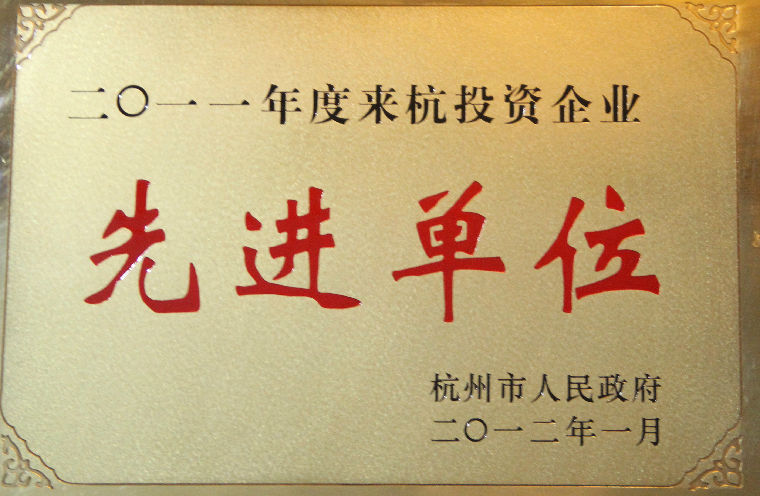 二〇一一年度来杭投资企业
先进单位
杭州市人民政府
二〇一二年一月